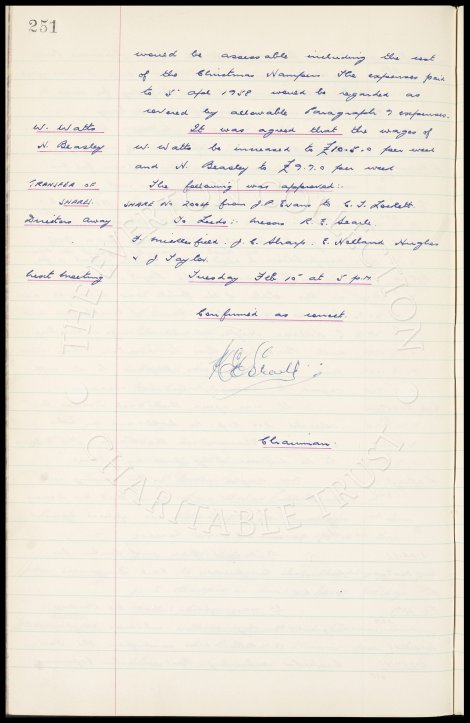 251
would be assessable including the cost
of the Christmas Hampers. The expenses paid
to 5 apl 1958 would be regarded as
covered by allowable Paragraph 9 expenses.
W. Watts It was agreed that the wages of
N Beasley W. Watts be increased to £10.5.0 per week
and N Beasley to £9.7.0 per week
TRANSFER OF The following was approved:-
SHARES: SHARE No 2004 from J.P. Evans to C.F. Lockett.
Directors away To Leeds:- Messrs R.E. Searle.
F. Micklesfield. J.C. Sharp. E. Holland Hughes
& J Taylor.
Next Meeting Tuesday Feb 10 at 5 p.m.
Confirmed as correct.
Chairman.
THE EV CTION
CHARITABLE TRUST